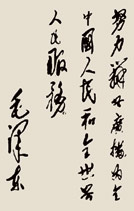 努力办好广播为全
中國人民和全世界
人民服務
毛澤東